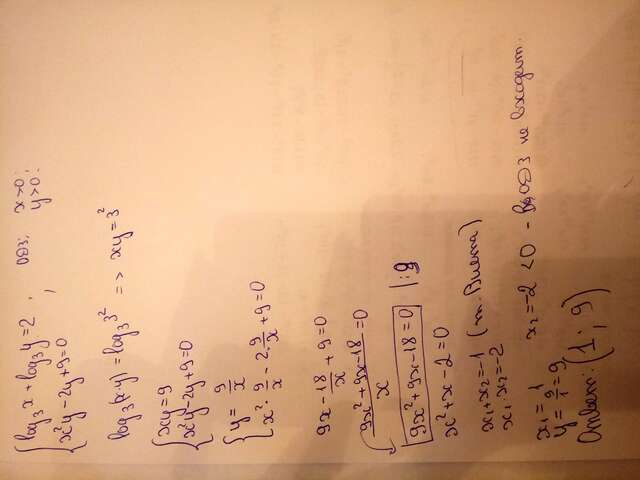 { log₃x + log₃y = 2 ; ОДЗ: x>0;
{ x²y − 2y + 9 = 0 ; y>0;
log₃(xy) = log₃3² => xy = 3²
{ xy = 9
{ x²y − 2y + 9 = 0
{ y = 9/x
{ x² · 9/x − 2 · 9/x + 9 = 0
9x − 18/x + 9 = 0
(9x² + 9x − 18)/x = 0
9x² + 9x − 18 = 0 |:9
x² + x − 2 = 0
x₁ + x₂ = −1 (т. Виета)
x₁ · x₂ = −2
x₁ = 1 x₂ = −2 < 0 - в ОДЗ не входит.
y = 9/1 = 9
Ответ: (1 ; 9)